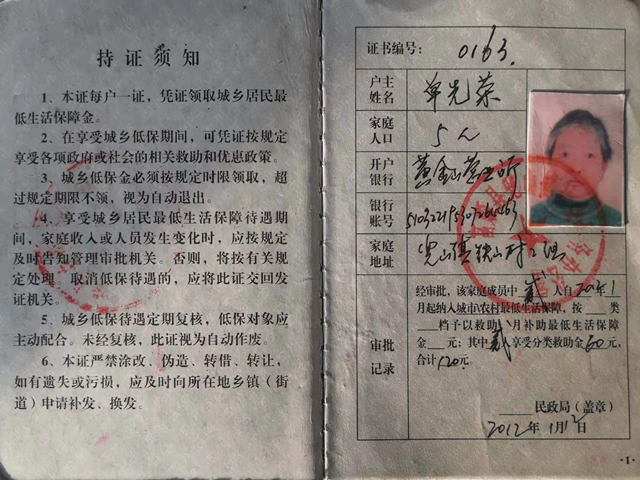 持证须知
1、本证每户一证，凭证领取城乡居民最
低生活保障金。
2、在享受城乡低保期间，可凭证按规定
享受各项政府或社会的相关救助和优惠政策。
3、城乡低保金必须按规定时限领取，超
过规定期限不领，视为自动退出。
4、享受城乡居民最低生活保障待遇期
间，家庭收入或人员发生变化时，应按规定
及时告知管理审批机关。否则，将按有关规
定处理 取消低保待遇的，应将此证交回发
证机关。
5、城乡低保待遇定期复核，低保对象应
主动配合。未经复核，此证视为自动作废。
6、本证严禁涂改、伪造、转借、转让，
如有遗失或污损，应及时向所在地乡镇（街
道）申请补发、换发。
证书编号： 0163.
户主
姓名
单光荣
家庭
人口
5人
开户
银行
黄金 营业所
银行
账号
家庭
地址
村 组
审批
记录
经审批，该家庭成员中 贰 人自 年1
月起纳入城市农村最低生活保障，按 类
档予以救助 月补助最低生活保障
金 元；其中 贰 享受分类救助金60元，
合计120元。
民政局（盖章）
2012年1月12日
·1·